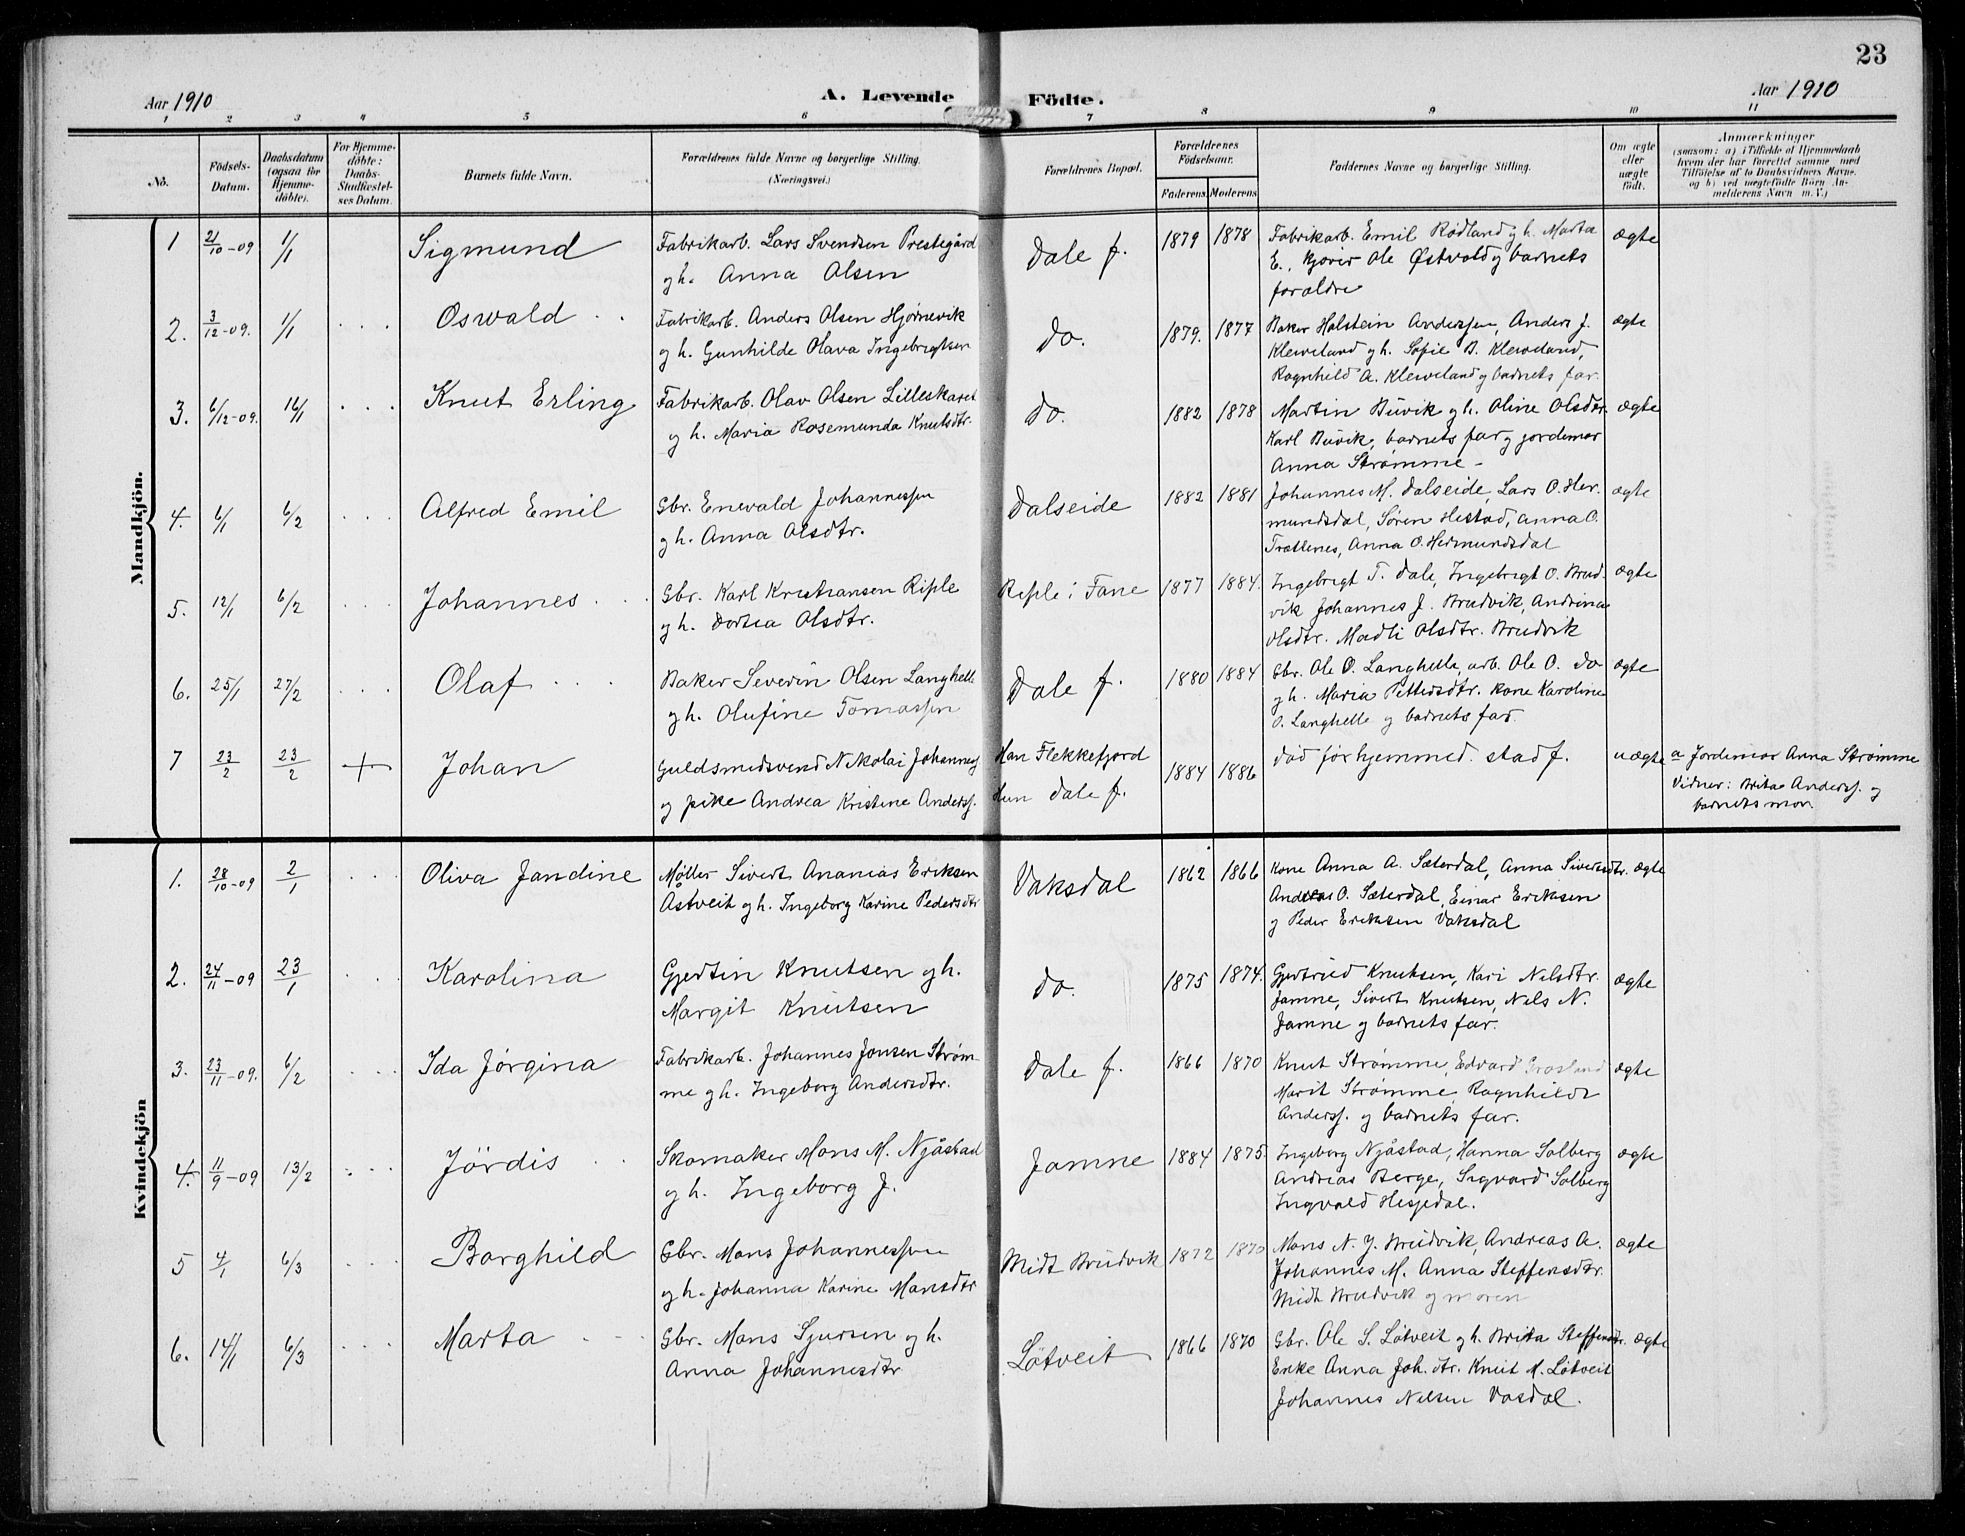 23
Aar 1910
A. Levende
Födte.
Aar 1910
1 2 3 4 5 6 7 8 9 10 11
No.
Födsels-
Datum.
Daabsdatum
(ogsaa for
Hjemme-
döbte).
For Hjemme-
döbte:
Daabs-
Stadfæstel-
ses Datum.
Barnets fulde Navn.
Forældrenes fulde Navne og borgerlige Stilling.
(Næringsvei.)
Forældrenes Bopæl.
Forældrenes
Födselsaar.
Faderens Moderens
Faddernes Navne og borgerlige Stilling.
Om ægte
eller
uægte
födt.
Anmærkninger
(saasom: a) i Tilfælde af Hjemmedaab
hvem der har forrettet samme, med
Tilföielse af to Daabsvidners Navne.
og b) ved uægtefödte Börn An-
melderens Navn m. V.)
Mandkjön.
1 21/10-09 1/1 Sigmund Fabrikarb. Lars Svendsen Prestegård Dale f. 1879 1878 Fabrikarb. Emil Rødland g h. Marta ægte
g h. Anna Olsen E., kjører Ole Østvold g barnets
forældre
2. 3/12-09. 1/1 . . . Oswald . . Fabrikarb. Anders Olsen Hjørnevik do. 1879. 1877 Baker Holstein Anderssen, Anders J. ægte
g h. Gunhilde Olava Ingebrigtsen Kleiveland g h. Sofie B. Kleiveland,
Ragnhild A. Kleiveland g barnets far.
3. 6/12-09. 16/1 . . . Knut Erling Fabrikarb. Olav Olsen Lilleskaret do. 1882 1878 Martin Büvik g h. Oline Olsdtr. ægte
g h. Maria Rosemunda Knutsdtr. Karl Büvik, barnets far g jordemor
Anna Strømme -
4. 6/1 6/2 . . . Alfred Emil Gbr. Enevald Johannessen Dalseide 1882 1881 Johannes M. Dalseide, Lars O. Her- ægte
g h. Anna Olsdtr. mundsdal, Søren Hestad, Anna O.
Trættenes, Anna O. Hermundsdal
5. 12/1 6/2 . . . Johannes . . . Gbr. Karl Kristiansen Riple Riple i Fane 1877 1884. Ingebrigt T. Dale, Ingebrigt O. Brud- ægte
g h. Dortea Olsdtr. vik Johannes J. Brudvik, Andrina
Olsdtr. Madli Olsdtr. Brudvik
6. 25/1 27/2 . . . Olaf . . . Baker Severin Olsen Langhelle Dale f. 1880 1884 Gbr. Ole O. Langhelle, arb. Ole O. do ægte
g h. Olufine Tomassen g h. Maria Pettersdtr. kone Karoline
O. Langhelle g barnets far.
7 23/2 23/2 + Johan Guldsmedsvend Nikolai Johannes Han Flekkefjord 1884 1886 død før hjemmed. stadf. uægte a Jordemor Anna Strømme
g pike Andrea Kristine Anderss. Hun Dale f. Vidner: Brita Anderss. g
barnets mor.
Kvindekjön
1. 28/10-09 2/1 . . . Oliva Jandine Møller Sivert Ananias Eriksen Vaksdal 1862 1866 Kone Anna A. Sæterdal, Anna Sivertsdtr. ægte
Åstveit g h. Ingeborg Karine Pedersdtr Andreas O. Sæterdal, Einar Eriksen
g Peder Eriksen Vaksdal
2. 24/11-09 23/1 . . . Karolina Gjertin Knutsen g h. do. 1875 1874. Gjertrud Knutsen, Kari Nilsdtr. ægte
Margit Knutsen Jamne, Sivert Knutsen, Nils N.
Jamne g barnets far.
3. 23/11-09. 6/2 . . . Ida Jørgina Fabrikarb. Johannes Jonsen Strøm- Dale f. 1866 1870 Knut Strømme, Edvard ægte
me g h. Ingeborg Andersdtr. Marit Strømme, Ragnhild
Anderss. g barnets far.
4. 11/9-09 13/2 . . . Jördis . . Skomaker Mons M. Njåstad Jamne 1884 1875. Ingeborg Njåstad, Hanna Solberg ægte
g h. Ingeborg J. Andreas Berge, Sigvard Solberg
Ingvald Hesjedal.
5 4/1 6/3 . . . Borghild Gbr. Mons Johannessen Midt Brudvik 1872 1870 Mons N. J. Brudvik, Andreas A. ægte
g h. Johanna Karine Monsdtr Johannes M. Anna Steffensdtr.
Midt Brudvik og moren
6. 14/1 6/3 . . . Marta . . . Gbr. Mons Sjursen g h. Løtveit 1866 1870 Gbr. Ole S. Løtveit g h. Brita Steffensdtr. ægte
Anna Johannesdtr Enke Anna Joh. dtr. Knut M. Løtveit
Johannes Nilsen Vasdal.